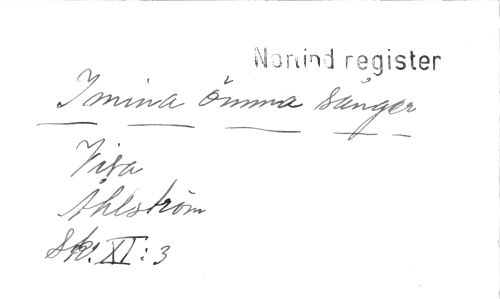 Norlind register
I mina ömma sånger
Visa
Åhlström
Sk. XI: 3